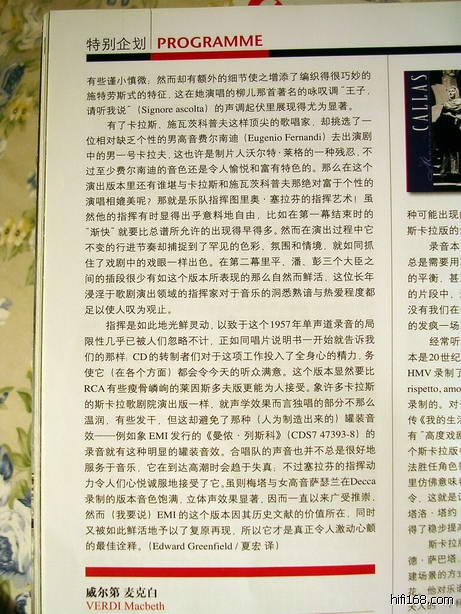 特别企划 PROGRAMME
有些谨小慎微；然而却有额外的细节使之增添了编织得很巧妙的
施特劳斯式的特征，这在她演唱的柳儿那首著名的咏叹调“王子，
请听我说”（Signore ascolta）的声调起伏里展现得尤为显著。
有了卡拉斯、施瓦茨科普夫这样顶尖的歌唱家，却挑选了一
位相对缺乏个性的男高音费尔南迪（Eugenio Fernandi）去出演剧
中的男一号卡拉夫，这也许是制片人沃尔特·莱格的一种残忍，不
过至少费尔南迪的音色还是令人愉悦和富有特色的。那么在这个
演出版本里还有谁堪与卡拉斯和施瓦茨科普夫那绝对富于个性的
演唱相媲美呢？那就是乐队指挥图里奥·塞拉芬的指挥艺术！虽
然他的指挥有时显得出乎意料地自由，比如在第一幕结束时的
“渐快”就要比总谱所允许的出现得早得多。然而在演出过程中它
不变的行进节奏却捕捉到了罕见的色彩、氛围和情境，就如同抓
住了戏剧中的戏眼一样出色。在第二幕里平、潘、彭三个大臣之
间的插段很少有如这个版本所表现的那么自然而鲜活，这位长年
浸淫于歌剧演出领域的指挥家对于音乐的洞悉熟谙与热爱程度都
足以使人叹为观止。
指挥是如此地光鲜灵动，以致于这个1957年单声道录音的局
限性几乎已被人们忽略不计，正如同唱片说明书一开始就告诉我
们的那样：CD的转制者们对于这项工作投入了全身心的精力，务
使它（在各个方面）都会令今天的听众满意。这个版本显然要比
RCA有些瘦骨嶙峋的莱因斯多夫版更能为人接受。象许多卡拉斯
的斯卡拉歌剧院演出版一样，就声学效果而言独唱的部分不那么
温润，有些发干，但这却避免了那种（人为制造出来的）罐装音
效——例如象EMI发行的《曼侬·列斯科》（CDS7 47393-8）的
录音就有这种明显的罐装音效。合唱队的声音也并不总是很好地
服务于音乐，它在到达高潮时会趋于失真，不过塞拉芬的指挥动
力令人们心悦诚服地接受了它。虽则梅塔与女高音萨瑟兰在Decca
录制的版本音色饱满、立体声效果显著，因而一直以来广受推崇，
然而（我要说）EMI的这个版本因其历史文献的价值所在，同时
又被如此鲜活地予以了复原再现，所以它才是真正令人激动心颤
的最佳诠释。（Edward Greenfield / 夏宏 译）
威尔第 麦克白
VERDI Macbeth
CALLAS
种可能出现的
斯卡拉版的
录音本
总是需要用
的平衡，甚
的片段中，
没有我们在
的发疯一场
经常听
本是20世纪
HMV录制了
rispetto, amo
录制的。对于
传《我的生
有“高度戏剧
个斯卡拉版
法胜任角色
里仿佛意味
令，这就是
塔洛·塔约
得了稳步提
斯卡拉
德·萨巴塔
建场景的方
花，他对乐
hifi168.com